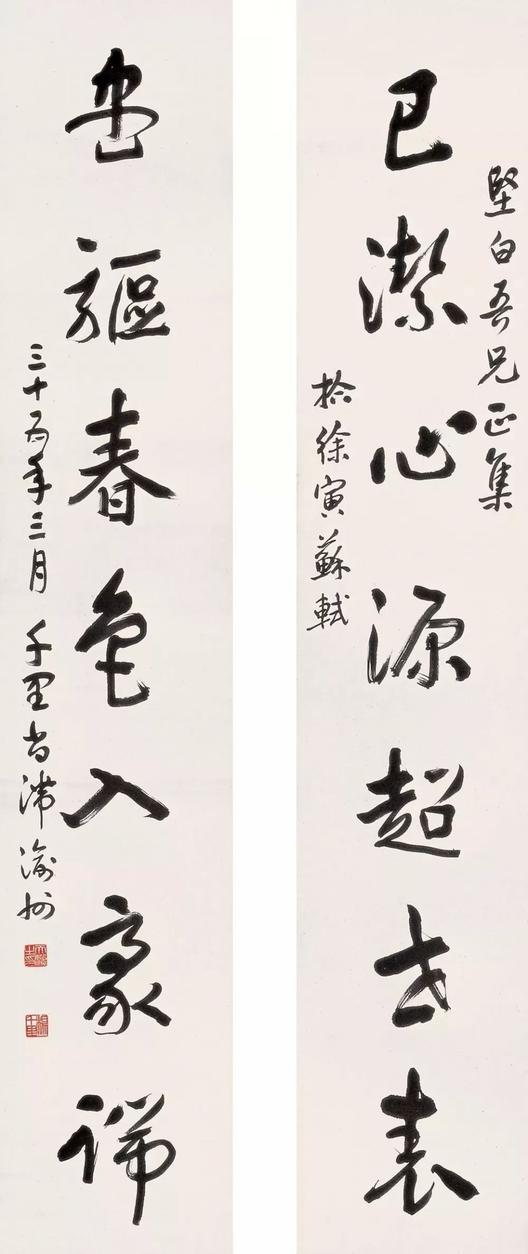 堅白吾兄正集
已潔心源超世表
拾徐寅蘇軾
盡驅春色入豪端
三十五年三月 千里尚滯渝州